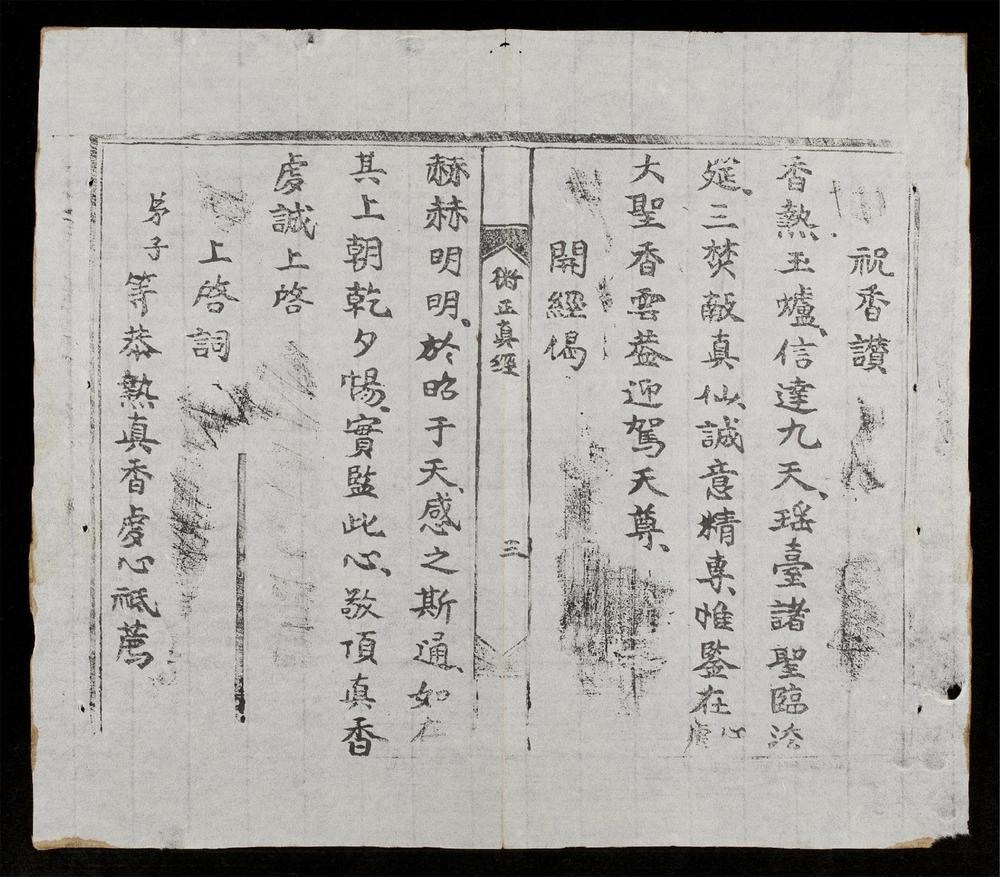 祝香讃
香熱玉爐、信達九天、瑶臺諸聖臨法
筵、三焚敵真仙、誠意精專惟鑒在虔心
大聖香雲蓋迎駕天尊、
開經偈
正真經
三
赫赫明明、於昭于天、感之斯通、如在
其上朝乾夕惕、實監此心、敬頂真香
虔誠上啓
上啓詞
弟子等恭熱真香虔心祗薦